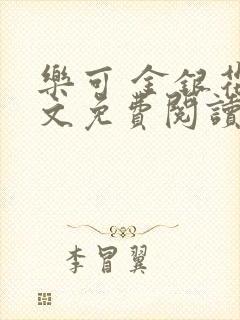 樂可 金銀花
文免費閱讀
李冒翼